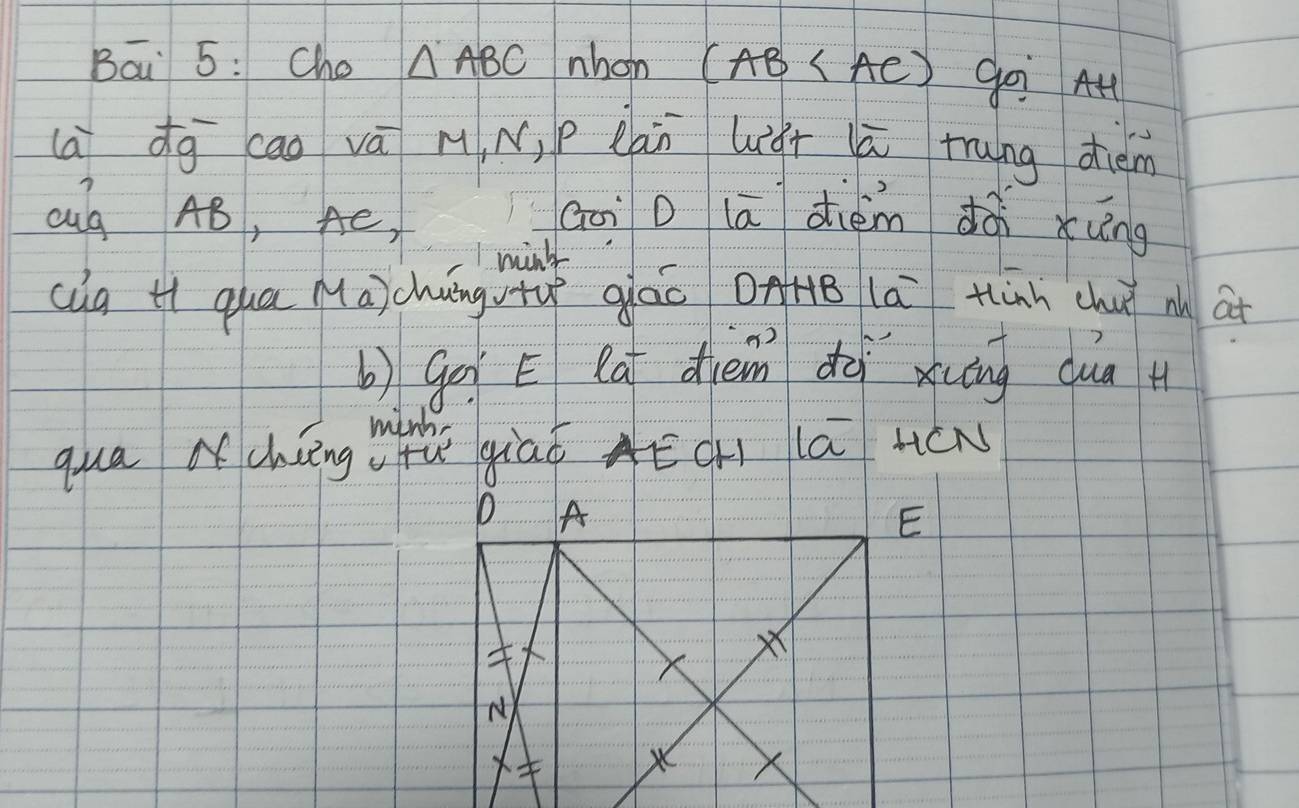 Bài 5: Cho Δ ABC nhọn (AB < AC) gọi AH
là đg cao và M, N, P lần lượt là trung điểm
của AB, AC, Gọi D là điểm đối xứng
của H qua M a) chứng minh tứ giác DAHB là Hình chữ nhật
b) Gọi E là điểm đối xứng của H
qua N chứng minh tứ giác AECH là HCN
D A E
N